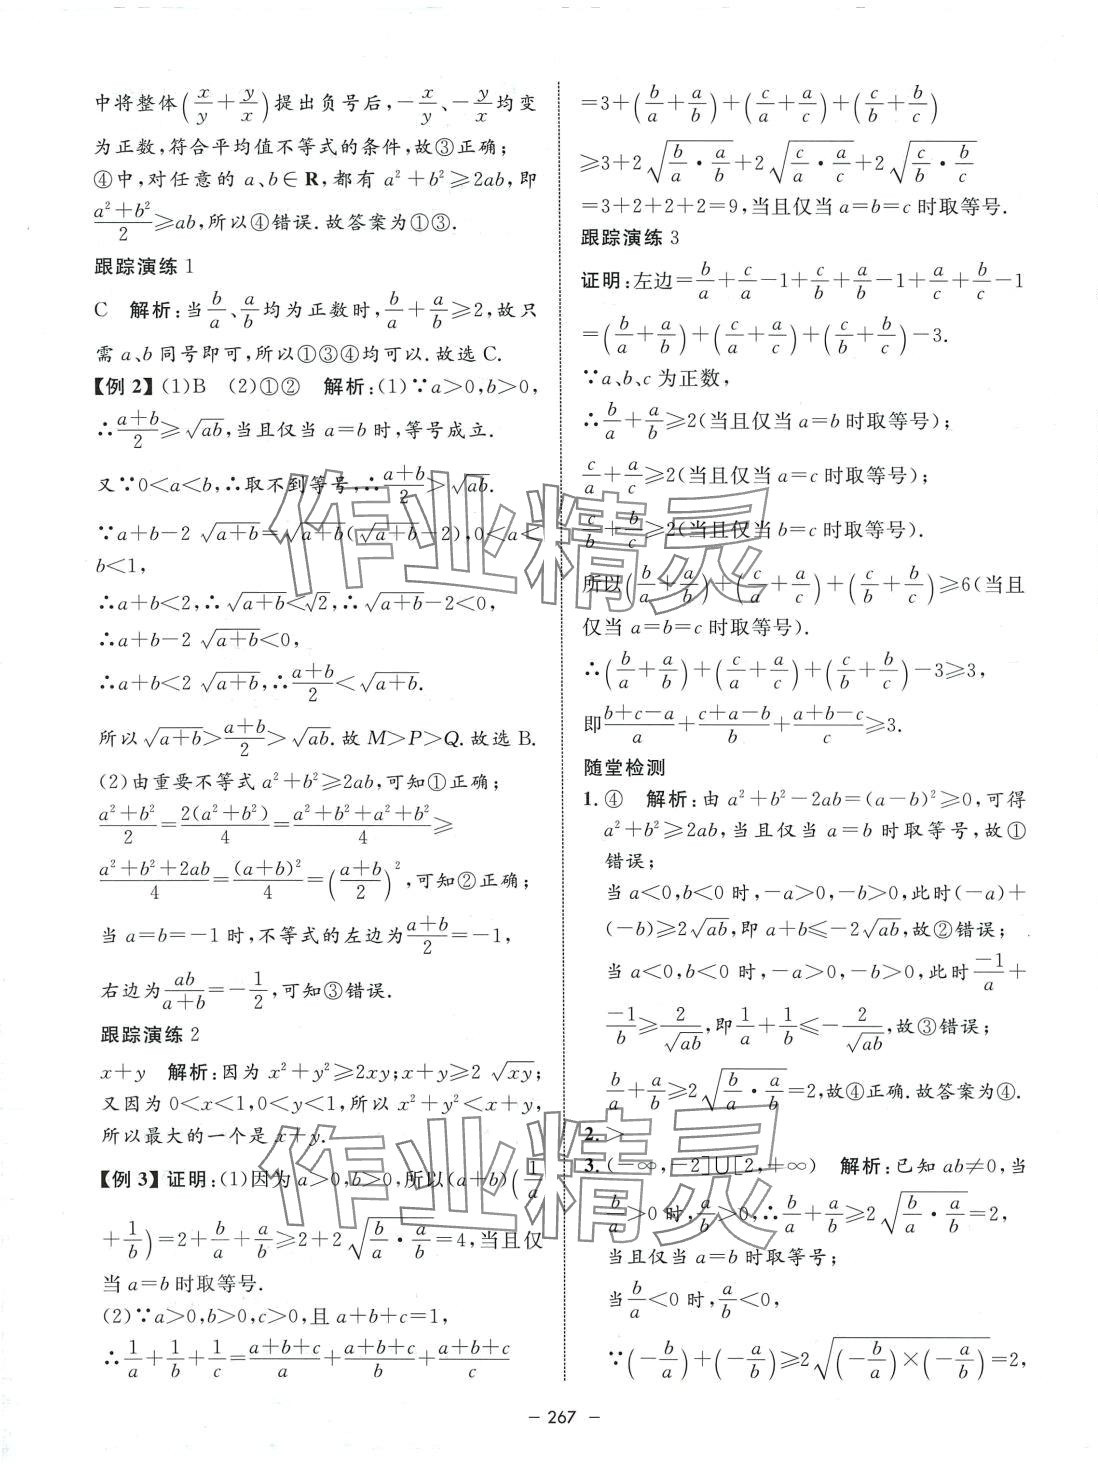 中将整体(x/y+y/x)提出负号后,-x/y、-y/x均变
为正数,符合平均值不等式的条件,故③正确;
④中,对任意的 a、b∈R,都有 a²+b²≥2ab,即
(a²+b²)/2≥ab,所以④错误.故答案为①③.
跟踪演练 1
C 解析:当 b/a、a/b均为正数时,b/a+a/b≥2,故只
需 a、b 同号即可,所以①③④均可以.故选 C.
【例 2】 (1)B (2)①② 解析:(1)∵a>0,b>0,
∴(a+b)/2≥√ab,当且仅当 a=b 时,等号成立.
又∵0<a<b,∴取不到等号,∴(a+b)/2>√ab.
∵a+b-2√(a+b)=√(a+b)(√(a+b)-2),0<a<
b<1,
∴a+b<2,∴√(a+b)<√2,∴√(a+b)-2<0,
∴a+b-2√(a+b)<0,
∴a+b<2√(a+b),∴(a+b)/2<√(a+b).
所以√(a+b)>(a+b)/2>√ab.故 M>P>Q.故选 B.
(2)由重要不等式 a²+b²≥2ab,可知①正确;
(a²+b²)/2=2(a²+b²)/4=(a²+b²+a²+b²)/4≥
(a²+b²+2ab)/4=(a+b)²/4=((a+b)/2)²,可知②正确;
当 a=b=-1 时,不等式的左边为(a+b)/2=-1,
右边为ab/(a+b)=-1/2,可知③错误.
跟踪演练 2
x+y 解析:因为 x²+y²≥2xy;x+y≥2√xy;
又因为 0<x<1,0<y<1,所以 x²+y²<x+y,
所以最大的一个是 x+y.
【例 3】 证明:(1)因为 a>0,b>0,所以(a+b)(1/a
+1/b)=2+b/a+a/b≥2+2√(b/a·a/b)=4,当且仅
当 a=b 时取等号.
(2)∵a>0,b>0,c>0,且 a+b+c=1,
∴1/a+1/b+1/c=(a+b+c)/a+(a+b+c)/b+(a+b+c)/c
=3+(b/a+a/b)+(c/a+a/c)+(c/b+b/c)
≥3+2√(b/a·a/b)+2√(c/a·a/c)+2√(c/b·b/c)
=3+2+2+2=9,当且仅当 a=b=c 时取等号.
跟踪演练 3
证明:左边=b/a+c/a-1+c/b+a/b-1+a/c+b/c-1
=(b/a+a/b)+(c/a+a/c)+(c/b+b/c)-3.
∵a、b、c 为正数,
∴b/a+a/b≥2(当且仅当 a=b 时取等号);
c/a+a/c≥2(当且仅当 a=c 时取等号);
c/b+b/c≥2(当且仅当 b=c 时取等号).
所以(b/a+a/b)+(c/a+a/c)+(c/b+b/c)≥6(当且
仅当 a=b=c 时取等号).
∴(b/a+a/b)+(c/a+a/c)+(c/b+b/c)-3≥3,
即(b+c-a)/a+(c+a-b)/b+(a+b-c)/c≥3.
随堂检测
1. ④ 解析:由 a²+b²-2ab=(a-b)²≥0,可得
a²+b²≥2ab,当且仅当 a=b 时取等号,故①
错误;
当 a<0,b<0 时,-a>0,-b>0,此时(-a)+
(-b)≥2√ab,即 a+b≤-2√ab,故②错误;
当 a<0,b<0 时,-a>0,-b>0,此时-1/a+
-1/b≥2/√ab,即1/a+1/b≤-2/√ab,故③错误;
b/a+a/b≥2√(b/a·a/b)=2,故④正确.故答案为④.
2. >
3. (-∞,-2]∪[2,+∞) 解析:已知 ab≠0,当
b/a>0 时,a/b>0,∴b/a+a/b≥2√(b/a·a/b)=2,
当且仅当 a=b 时取等号;
当b/a<0 时,a/b<0,
∵(-b/a)+(-a/b)≥2√((-b/a)×(-a/b))=2,
- 267 -
作业精灵
作业精灵